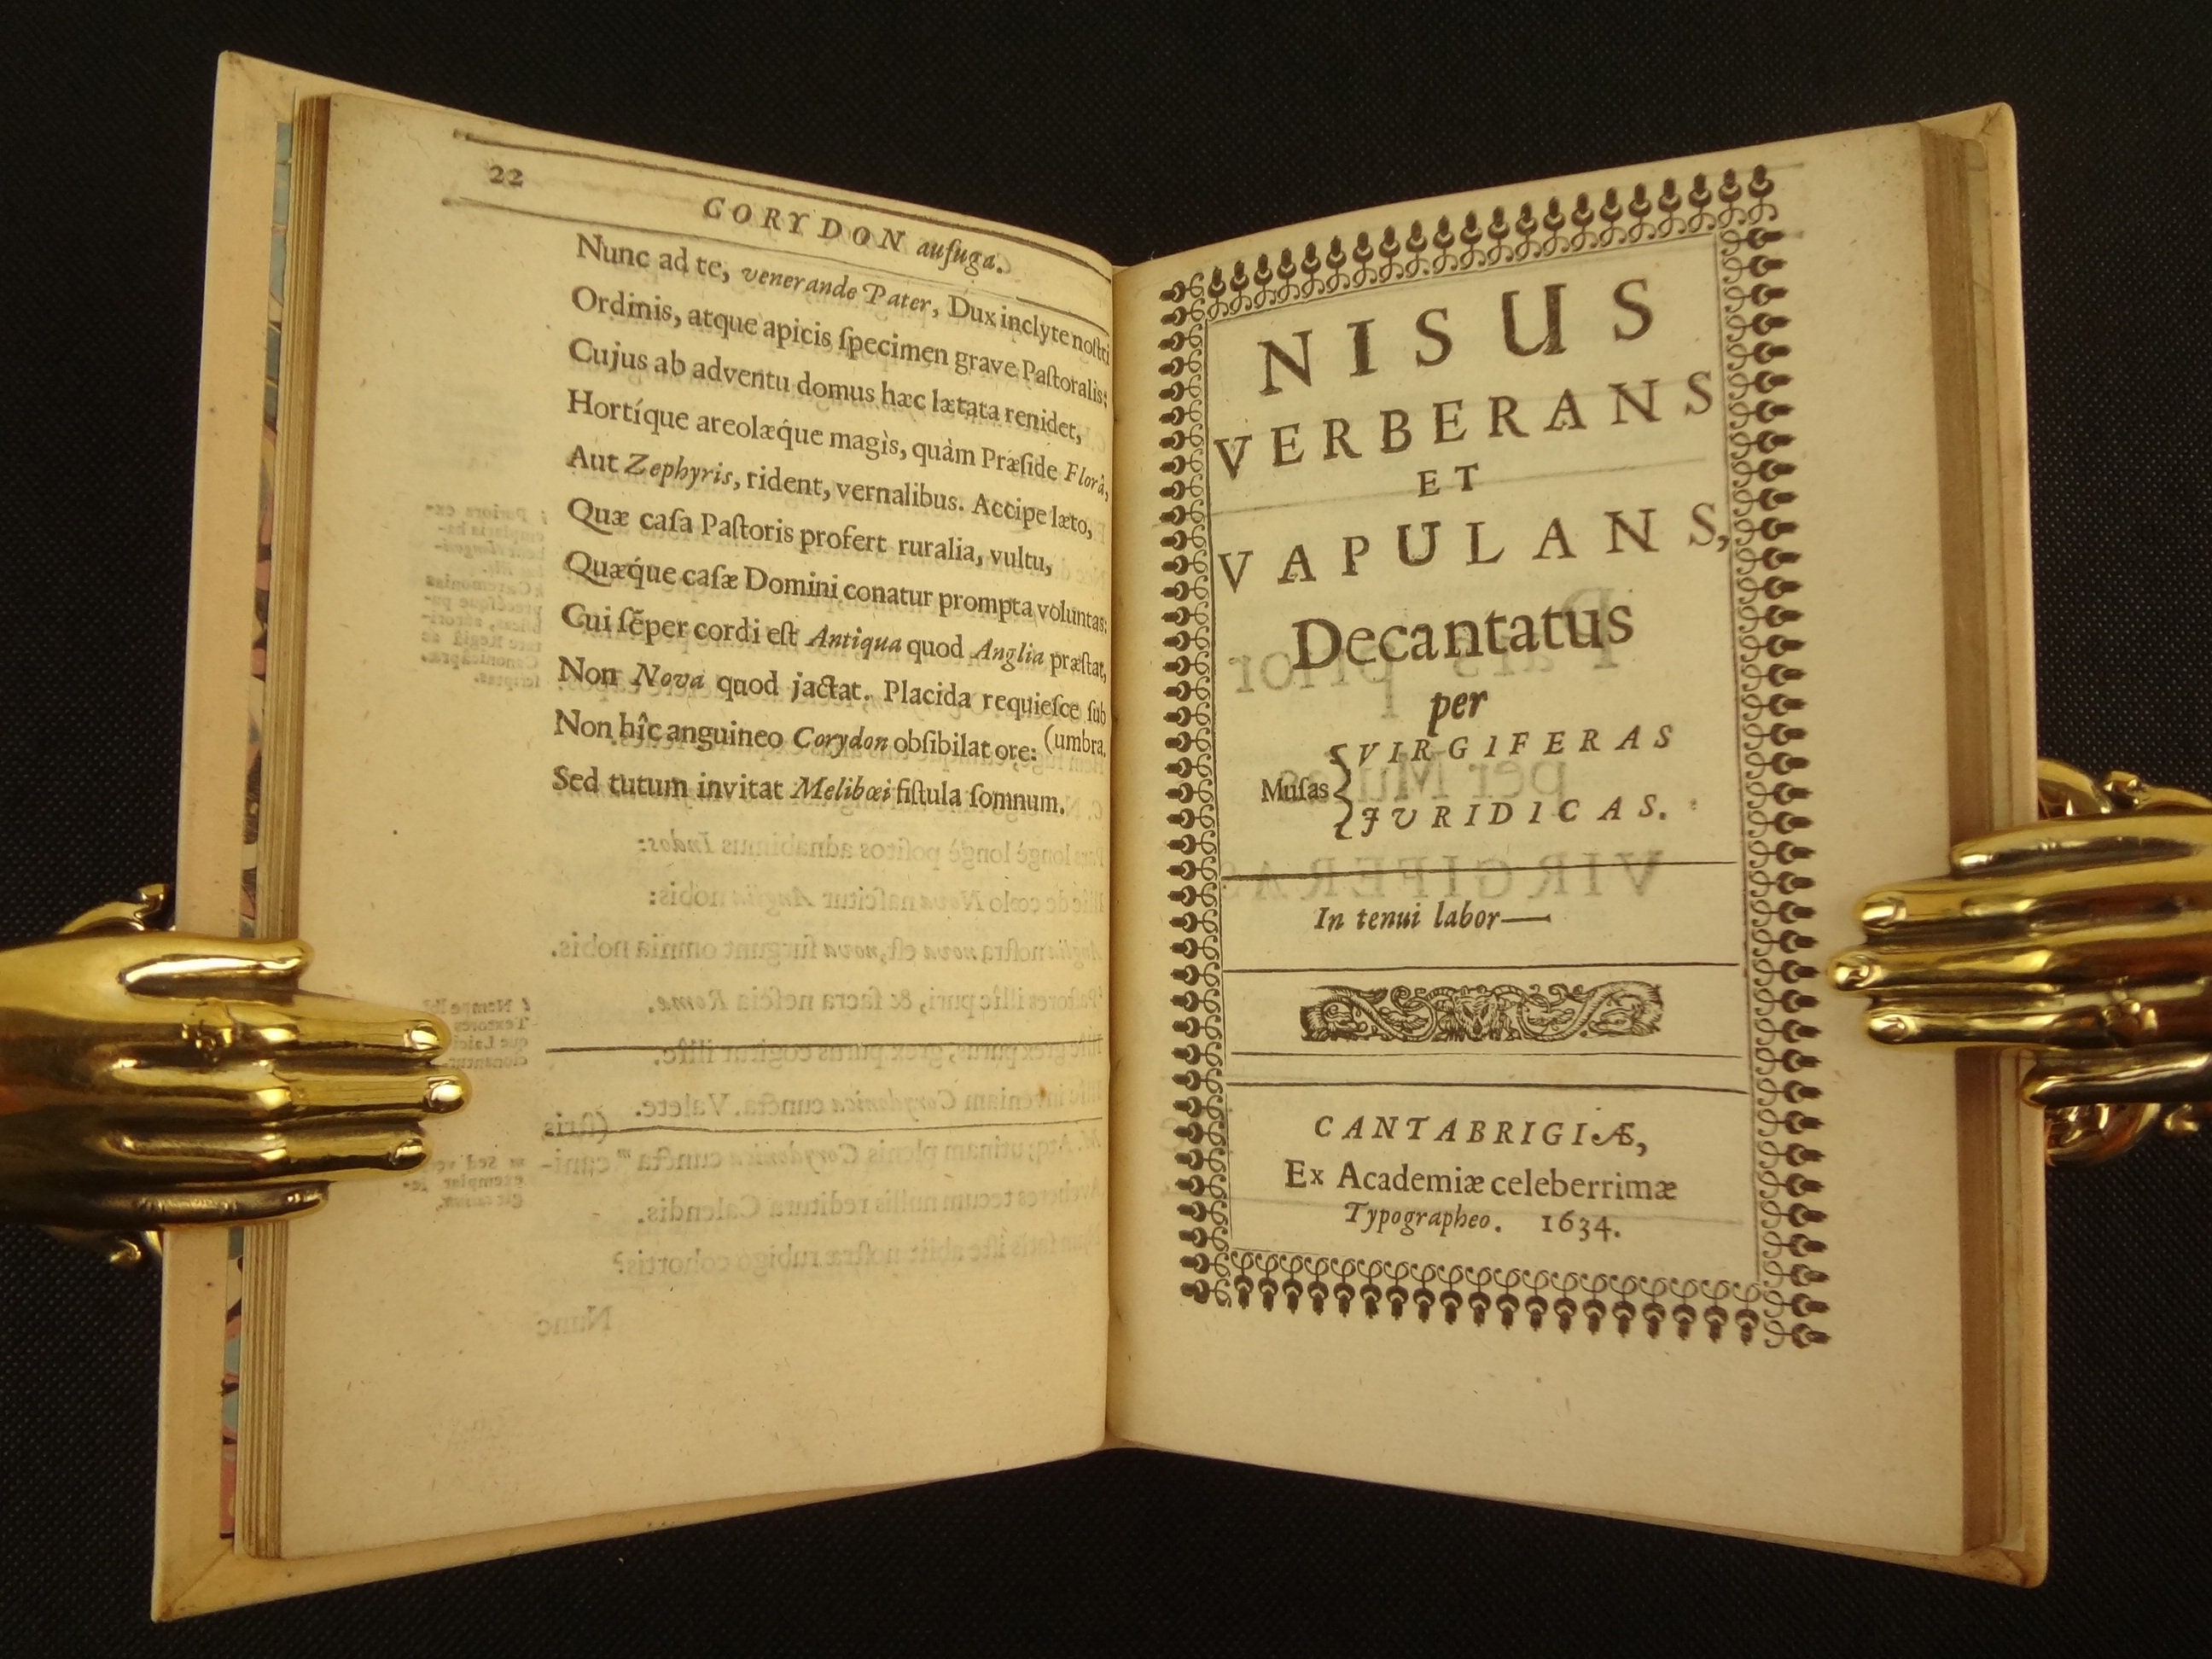 22
CORYDON aufuga.
Nunc ad te, venerande Pater, Dux inclyte noſtri
Ordinis, atque apicis ſpecimen grave Paſtoralis;
Cujus ab adventu domus hæc lætata renidet,
Hortíque areolæq́ue magìs, quàm Præſide Florâ,
Aut Zephyris, rident, vernalibus. Accipe læto,
Quæ caſa Paſtoris profert ruralia, vultu,
Quæq́ue caſæ Domini conatur prompta voluntas:
Cui ſẽper cordi eſt Antiqua quod Anglia præſtat,
Non Nova quod jactat. Placida requieſce ſub
(umbra.
Non hîc anguineo Corydon obſibilat ore:
Sed tutum invitat Melibœi fiſtula ſomnum.
NISUS
VERBERANS
ET
VAPULANS,
Decantatus
per
Muſas { VIRGIFERAS
JURIDICAS.
In tenui labor—
CANTABRIGIÆ,
Ex Academiæ celeberrimæ
Typographeo. 1634.